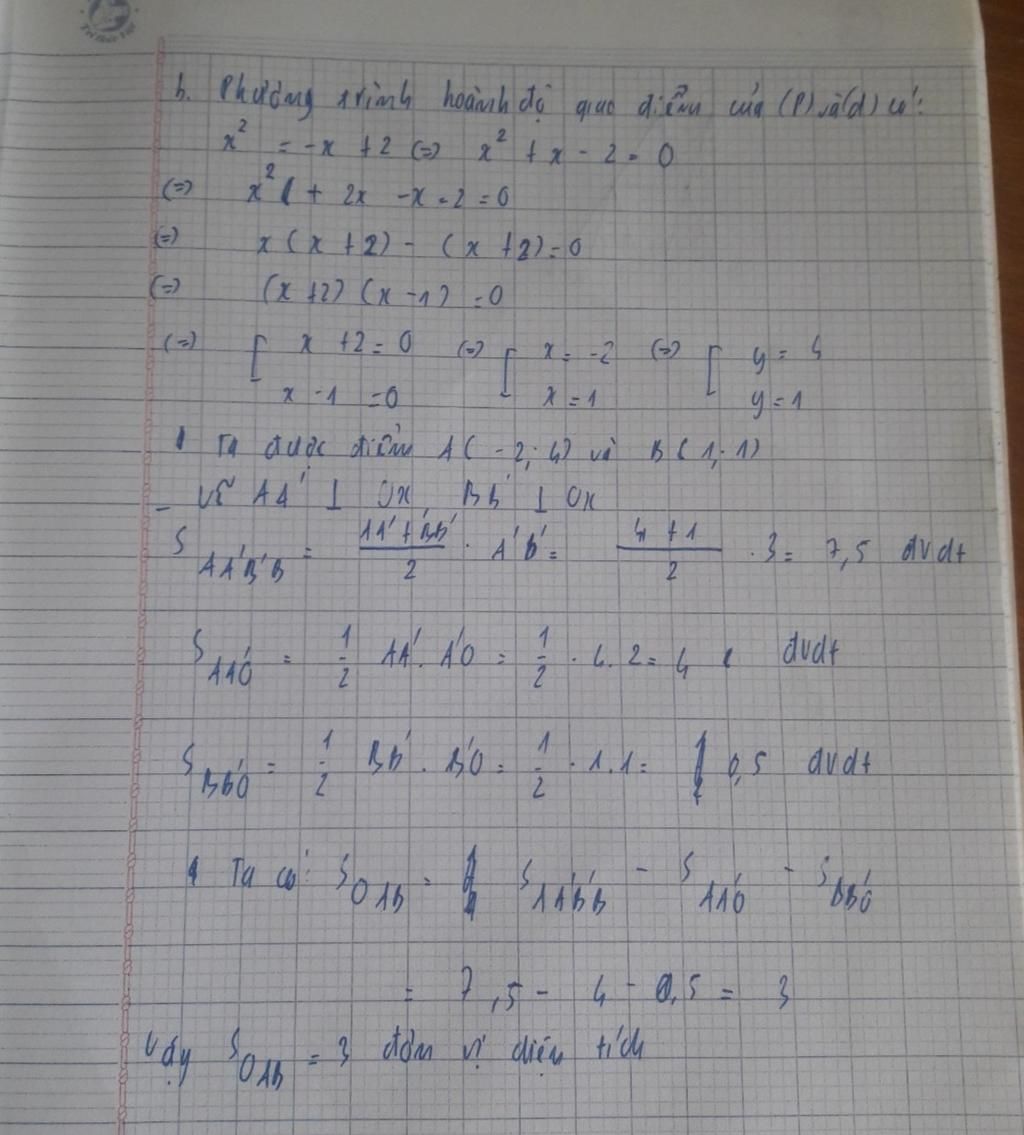 Trí Đức Việt
b. Phương trình hoành độ giao điểm của (P) và (d) có:
x² = -x + 2 (=) x² + x - 2 = 0
(=) x² + 2x - x - 2 = 0
(=) x (x + 2) - (x + 2) = 0
(=) (x + 2) (x - 1) = 0
(=) [ x + 2 = 0 (=) [ x = -2 (=) [ y = 4
x - 1 = 0 x = 1 y = 1
Ta được điểm A(-2; 4) và B(1; 1)
- Vẽ AA' ⊥ Ox BB' ⊥ Ox
S AA'B'B = (AA' + BB')/2 . A'B' = (4 + 1)/2 . 3 = 7,5 dvdt
S AA'O = 1/2 AA'. A'O = 1/2 . 4. 2 = 4 dvdt
S BB'O = 1/2 BB' . B'O = 1/2 . 1. 1 = 0,5 dvdt
Ta có: S OAB = S AA'B'B - S AA'O - S BB'O
= 7,5 - 4 - 0,5 = 3
Vậy S OAB = 3 đơn vị diện tích